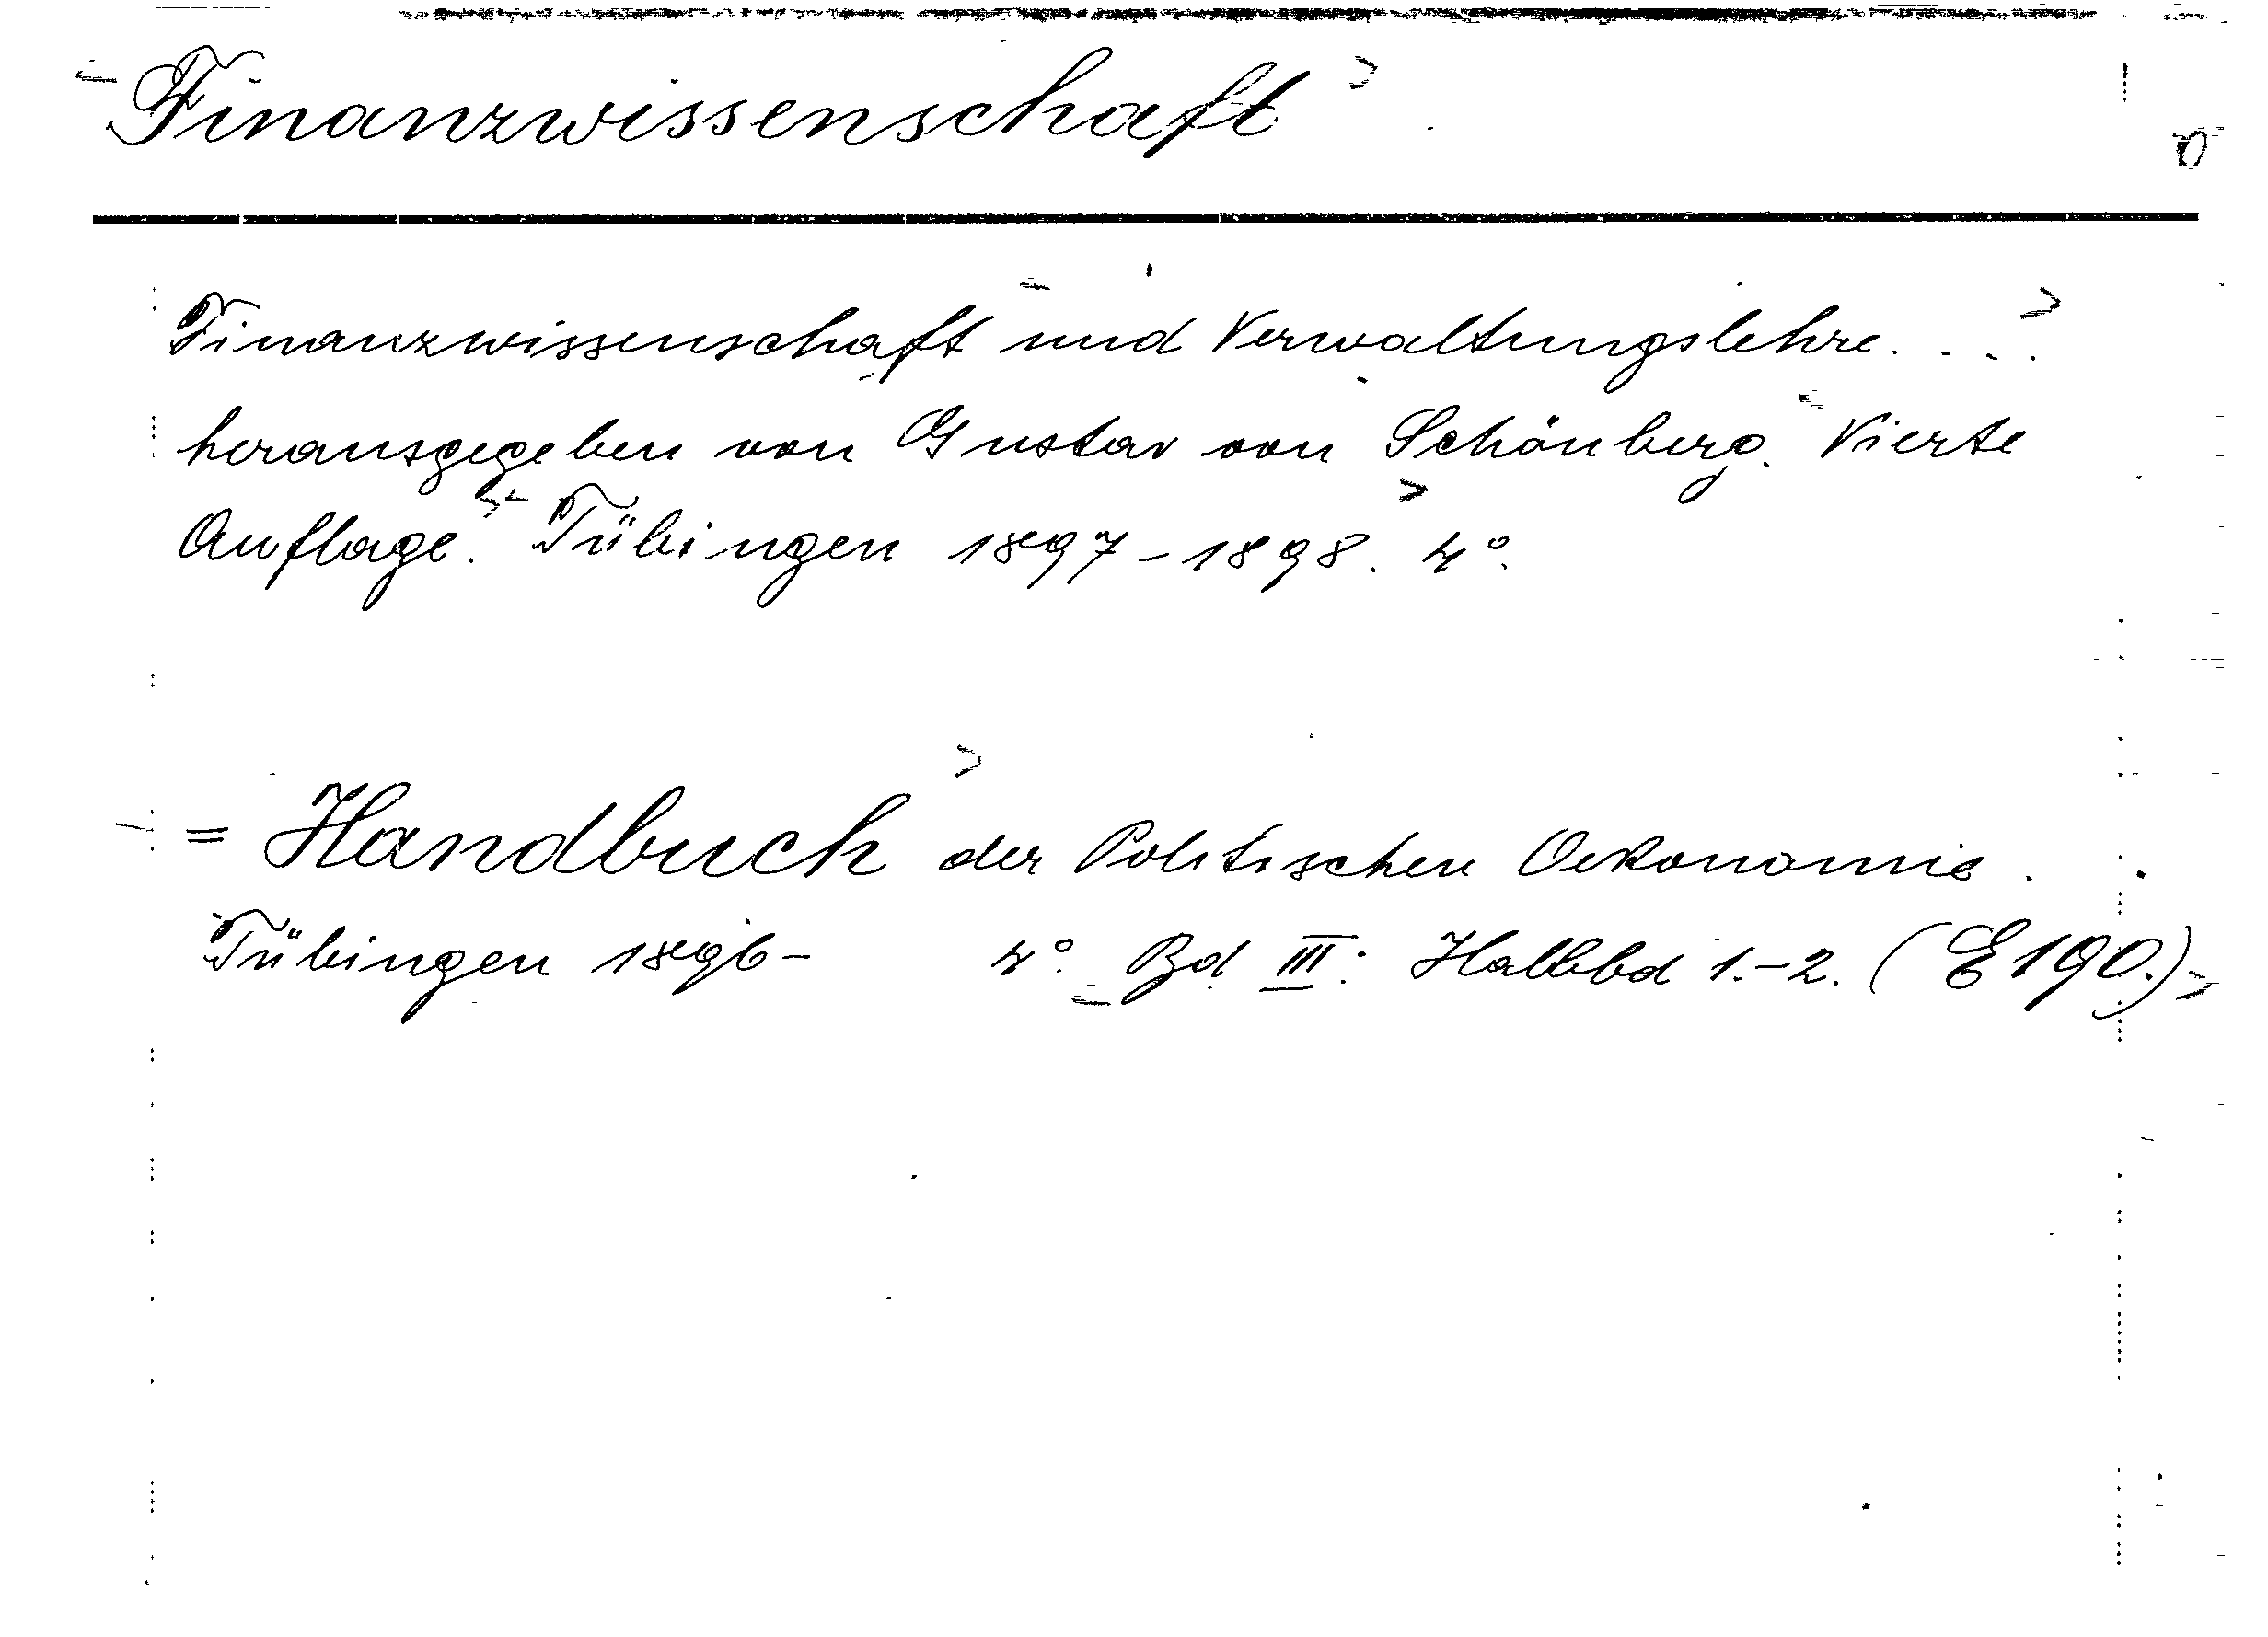 Finanzwissenschaft
Finanzwissenschaft und Verwaltungslehre. . . .
herausgegeben von Gustav von Schönberg. Vierte
Auflage. Tübingen 1897-1898. 4°.
= Handbuch der Politischen Oekonomie.
Tübingen 1896- 4°. Bd III: Halbbd 1.-2. (E190.)